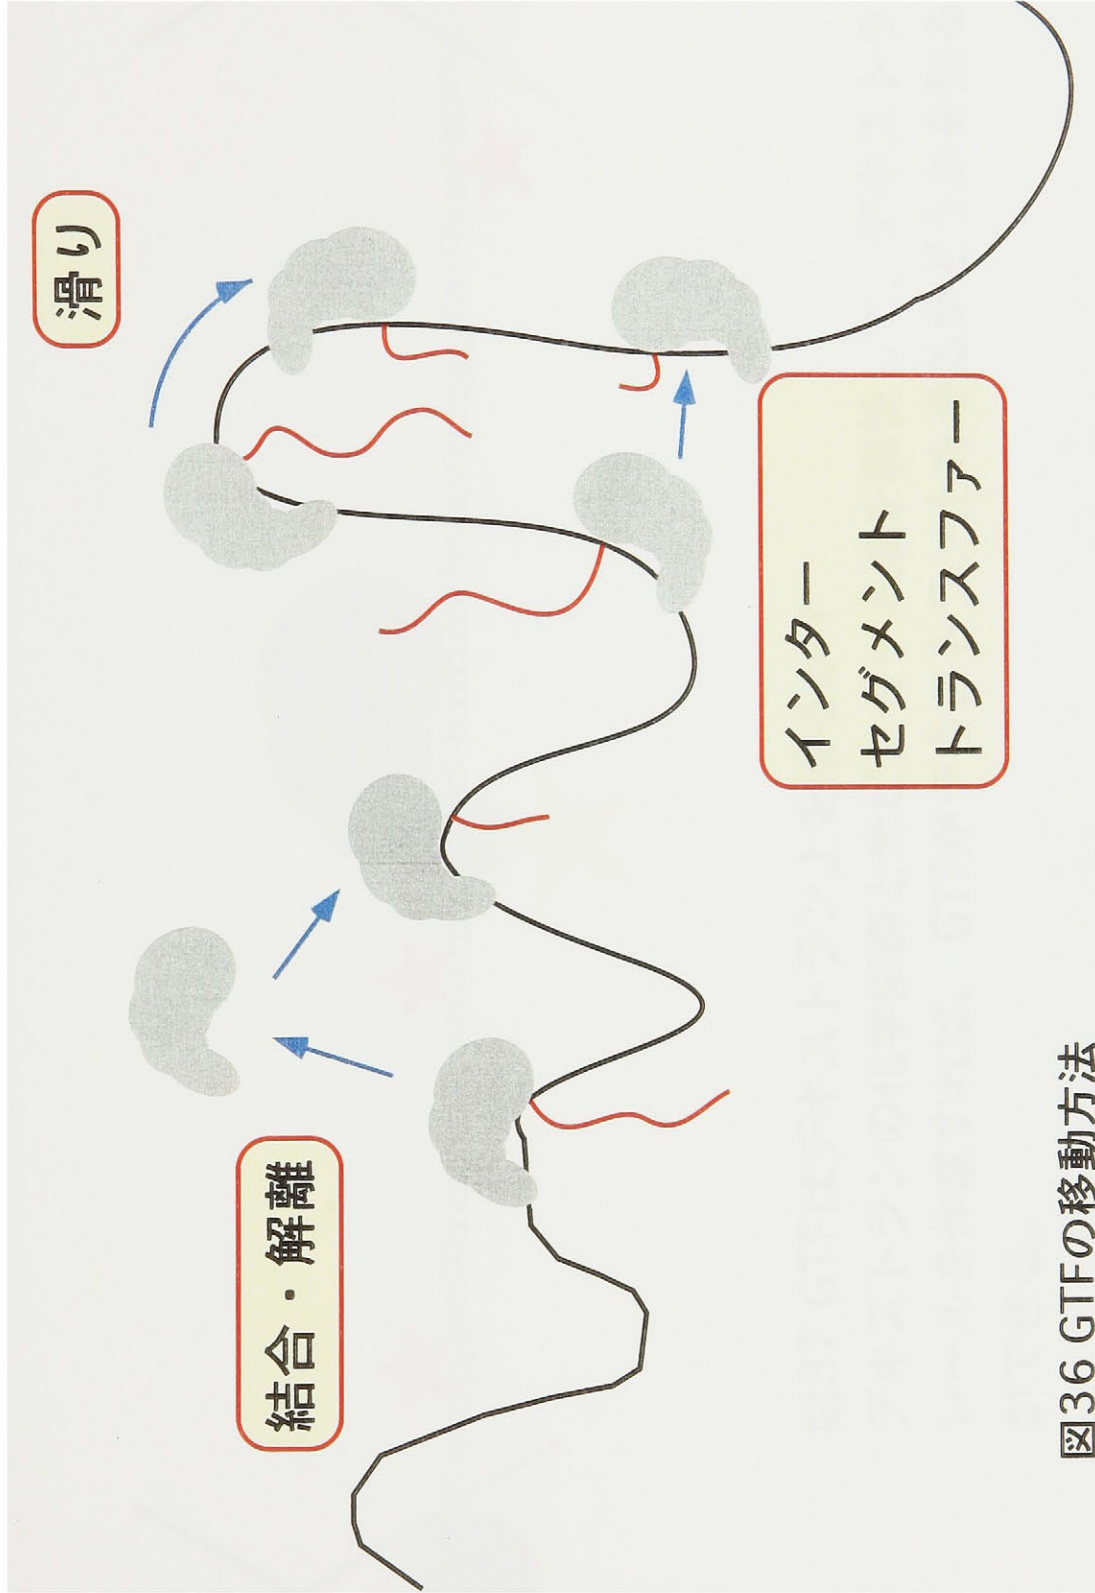 滑り
結合・解離
インター
セグメント
トランスファー
図36 GTFの移動方法